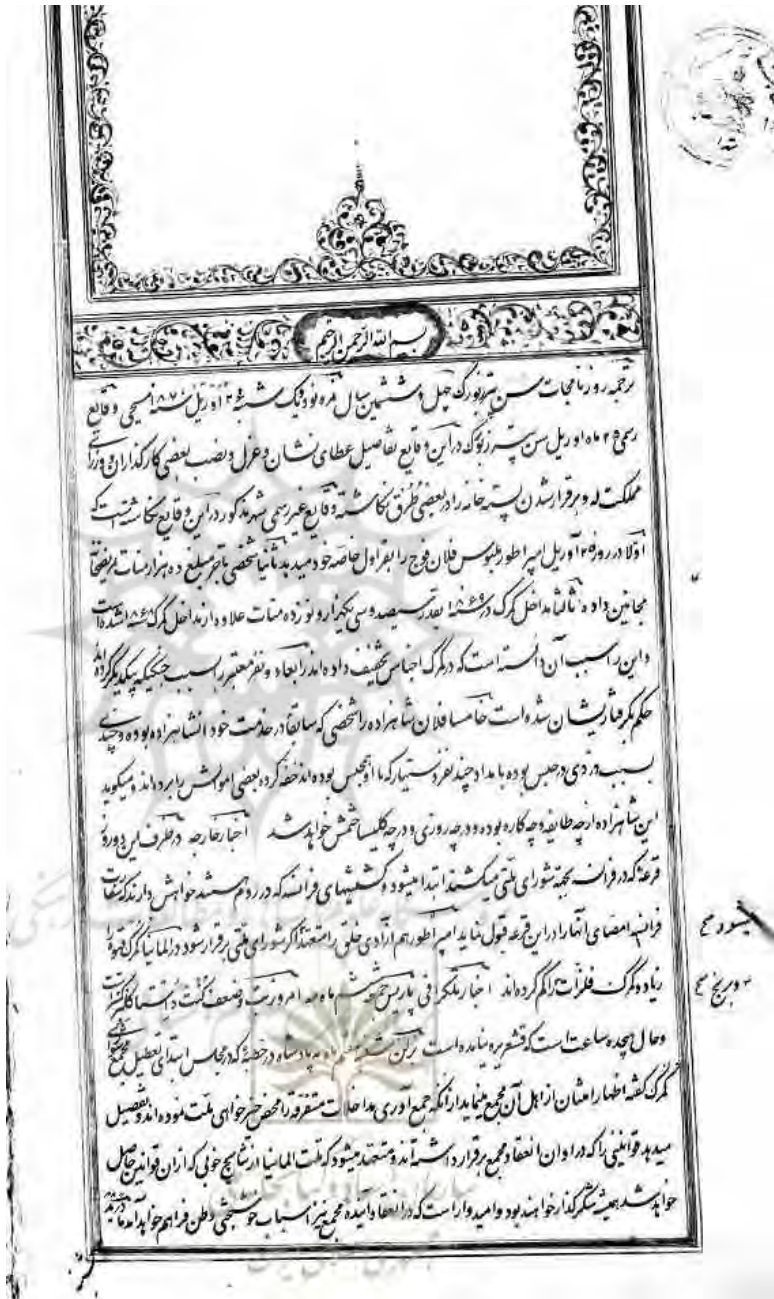 بسم الله الرحمن الرحیم
ترجمه روزنامجات سن پترزبورک چهل و ششمین سال نمره نود و یک شنبه ۲۵ آوریل سنه ۱۸۷۰ مسیحی وقایع
رسمی ۲۵ ماه اوریل سن پترزبوکه در این وقایع تفاصیل عطای نشان و عزل و نصب بعضی کارکذاران و وزرای
مملکت له و برقرار شدن پسته خانه را در بعضی طرق نکاشته وقایع غیر رسمی شهر مذکور در این وقایع نکاشته است که
اولا در روز ۲۵ آوریل امپراطور ملبوس فلان فوج را بقراول خاصه خود میدهد ثانیا شخصی تاجر مبلغ ده هزار منات بمریضخانه
مجانین داده ثالثا مداخل کمرک در سنه ۱۸۶۹ بقدر سیصد و سی یکهزار و نوزده منات علاوه از مداخل کمرک ۱۸۶۸ شده است
و این را سبب آن دانسته است که در کمرک اجناس تخفیف داده اند رابعا دو نفر معتبر بسبب جنکیکه بیکدیگر کرده اند
حکم بکرفتاریشان شده است خامسا فلان شاهزاده را شخصی که سابقا در خدمت خود انشاهزاده بوده و چندی
بسبب دزدی در حبس بوده با مداد چند نفر دستیار که با او بحبس بوده اند خفه کرده بعضی اموالش را برده اند و میکوید
این شاهزاده از چه طایفه و چه کاره بوده و در چه روزی و در چه کلیسا ختمش خواهد شد اخبار خارجه در ظرف این دو روز
قرعه که در فرانسه بجهة شورای ملتی میکشند ابتدا میشود و کشیشهای فرانسه که در روم هستند خواهش دارند که سفارت
فرانسه امضای آنها را در این قرعه قبول نماید امپراطور هم آزادی خلق را متعهد اکر شورای ملتی برقرار شود در المانیا کمرک قهوه را
میشود صح
زیاد و کمرک فلزات را کم کرده اند اخبار تلکرافی پاریس جمعه ششم ماه مه امروز تب و ضعف کنت
و برنج صح
و حال هیجده ساعت است که قشعریره نیامده است برلن شنبه هفتم ماه مه پادشاه در خطبه که در مجلس ابتدای تعطیل مجمع
کمرک کفته اظهار امتنان از اهل آن مجمع مینماید از آنکه جمع آوری مداخلات متفرقه را محض خیرخواهی ملت نموده اند و تفصیل
میدهد قوانینی را که در اوان انعقاد مجمع برقرار داشته اند و متعهد میشود که ملت المانیا از نتایج خوبی که از ان قوانین حاصل
خواهد شد همیشه شکر کذار خواهند بود و امیدوار است که در انعقاد آینده مجمع نیز اسباب خوشبختی وطن فراهم خواهد آمد